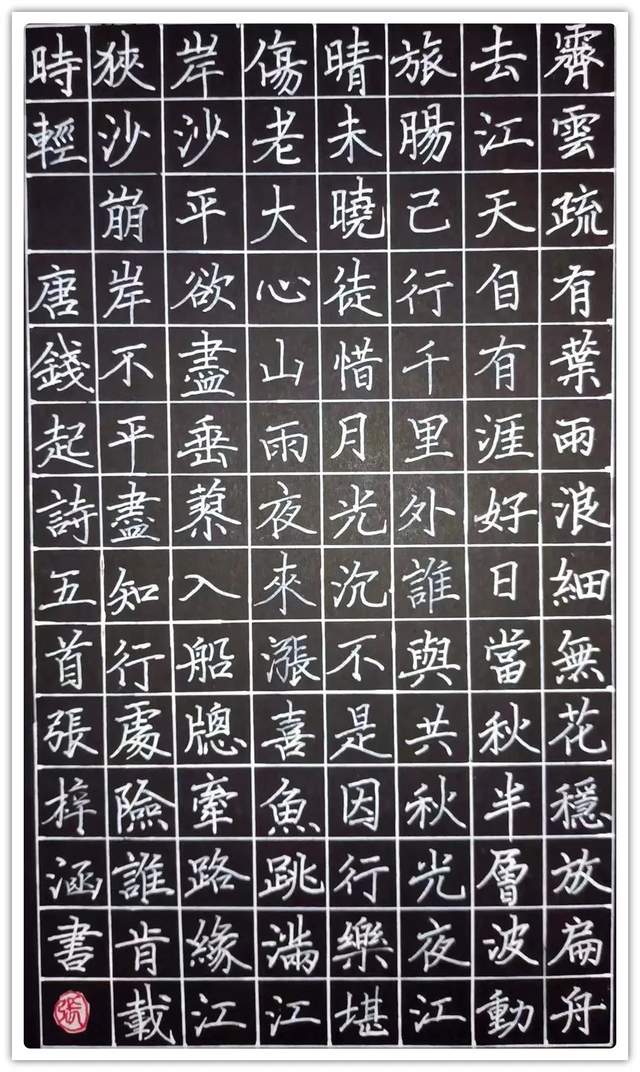 霽雲疏有葉雨浪細無花穩放扁舟
去江天自有涯好日當秋半層波動
旅腸已行千里外誰與共秋光夜江
晴未曉徒惜月光沉不是因行樂堪
傷老大心山雨夜來漲喜魚跳滿江
岸沙平欲盡垂蓼入船牕牽路緣江
狹沙崩岸不平盡知行處險誰肯載
時輕
唐錢起詩五首張梓涵書
張